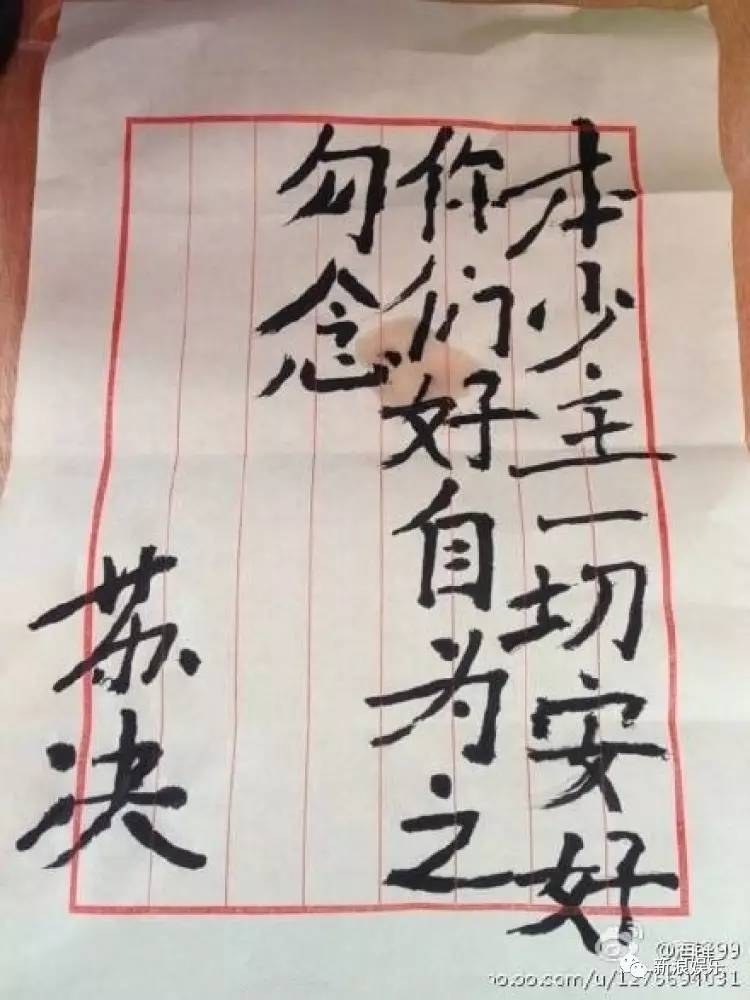 本少主一切安好
你们好自为之
勿念
苏决
@海锋99
新浪娱乐